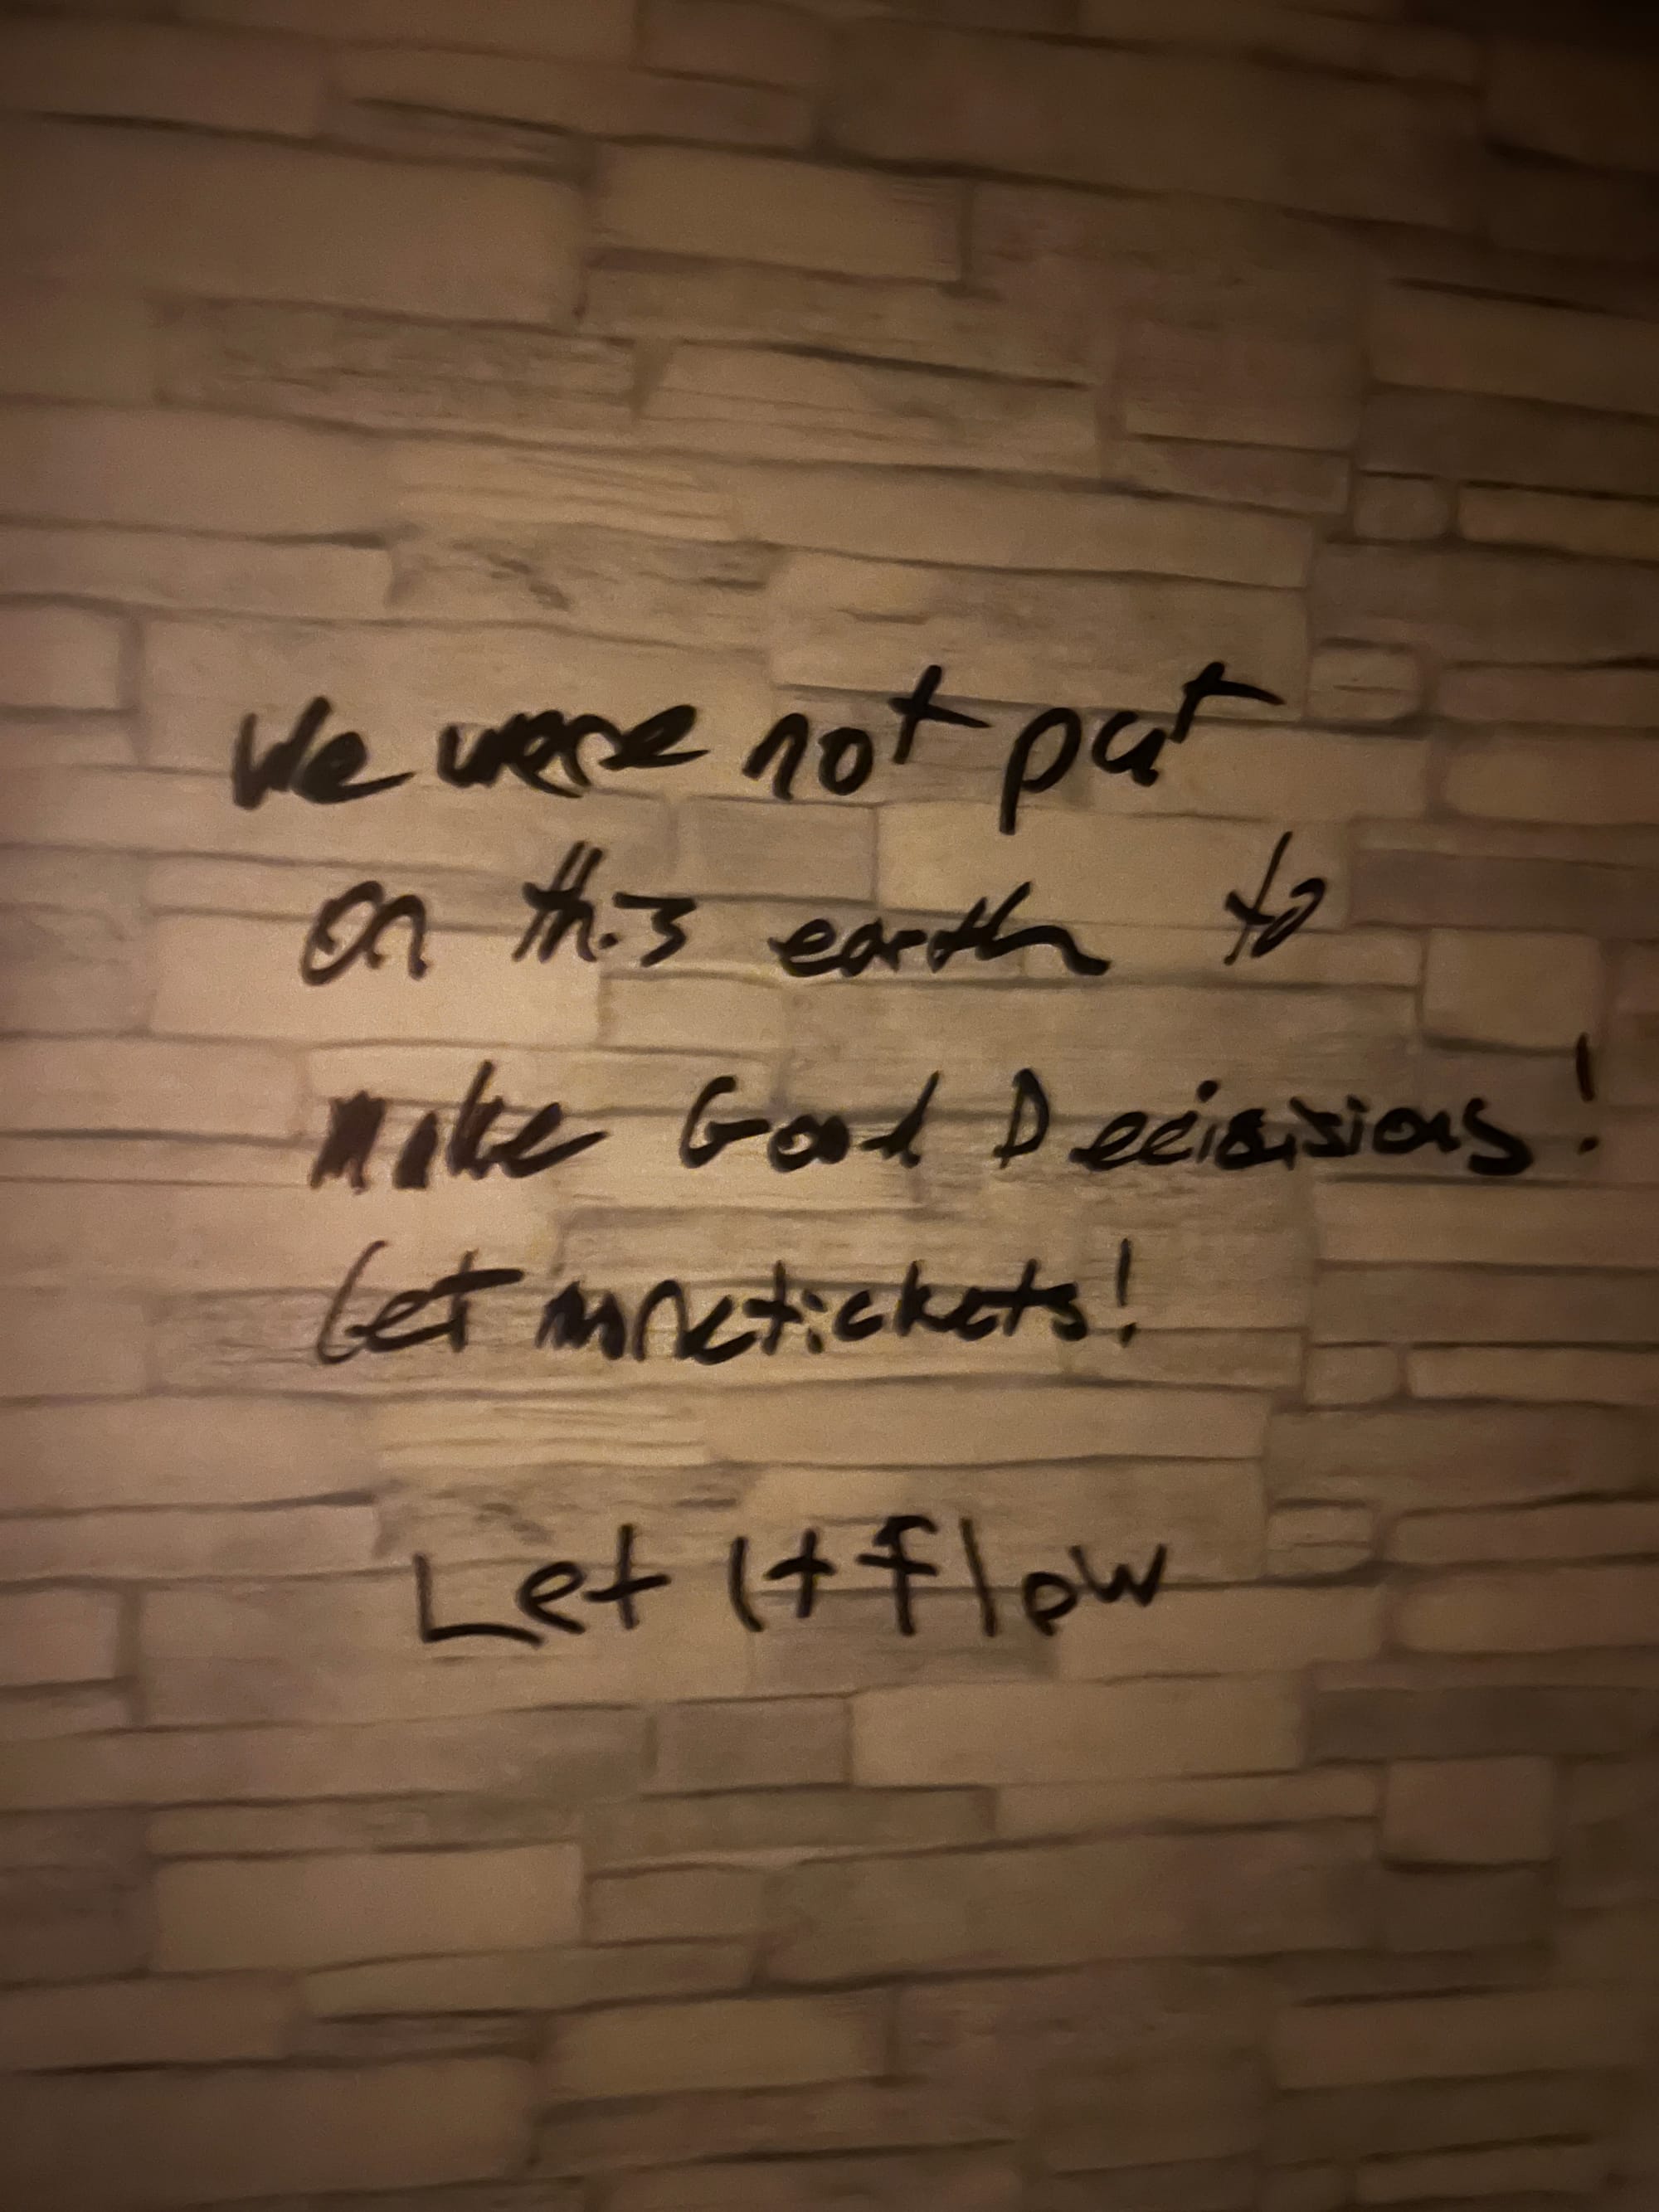 We were not put
on this earth to
make Good Decisisions!
Get more tickets!
Let It Flow